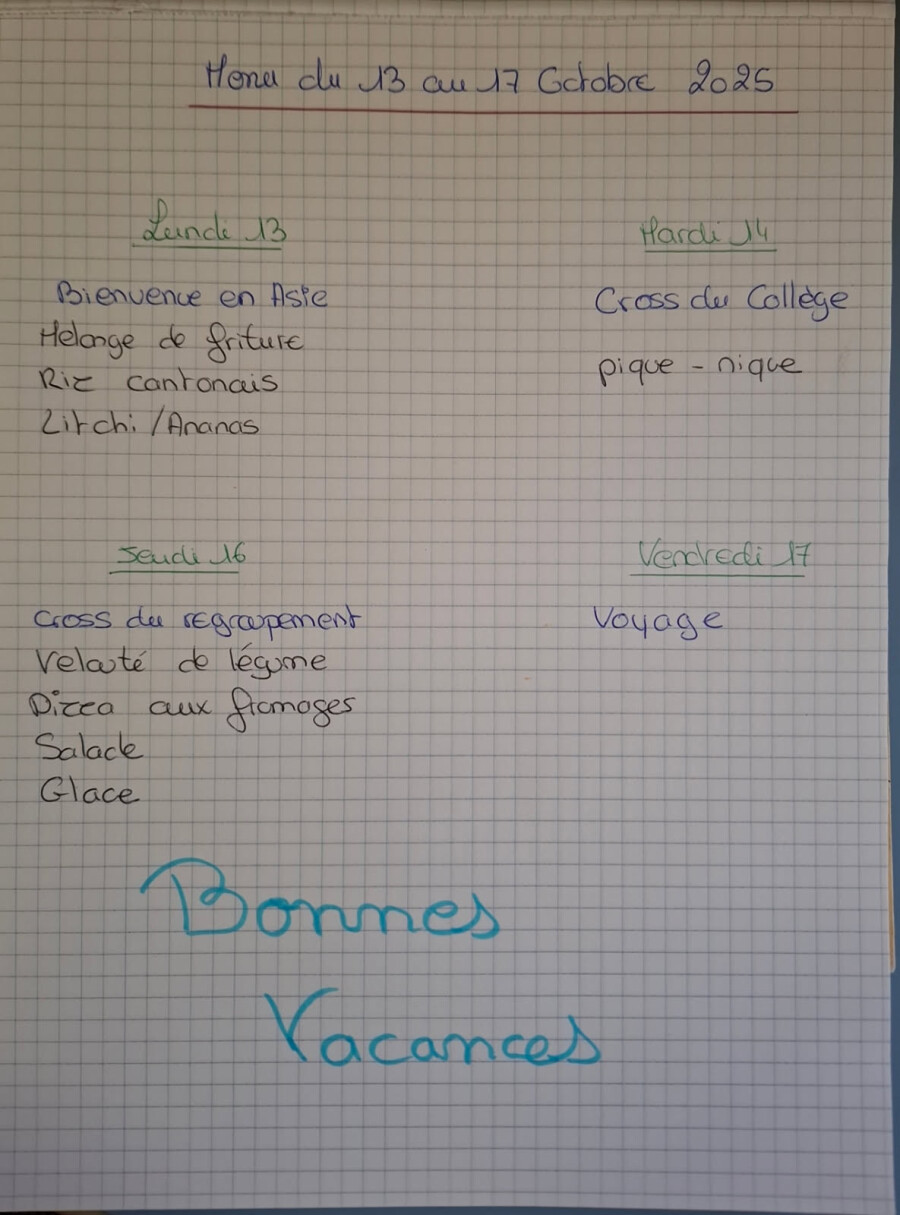 Menu du 13 au 17 Octobre 2025
Lundi 13
Bienvenue en Asie
Mélange de friture
Riz cantonais
Litchi / Ananas
Mardi 14
Cross du Collège
pique - nique
Jeudi 16
Cross du regroupement
Velouté de légume
Pizza aux fromages
Salade
Glace
Vendredi 17
Voyage
Bonnes
Vacances